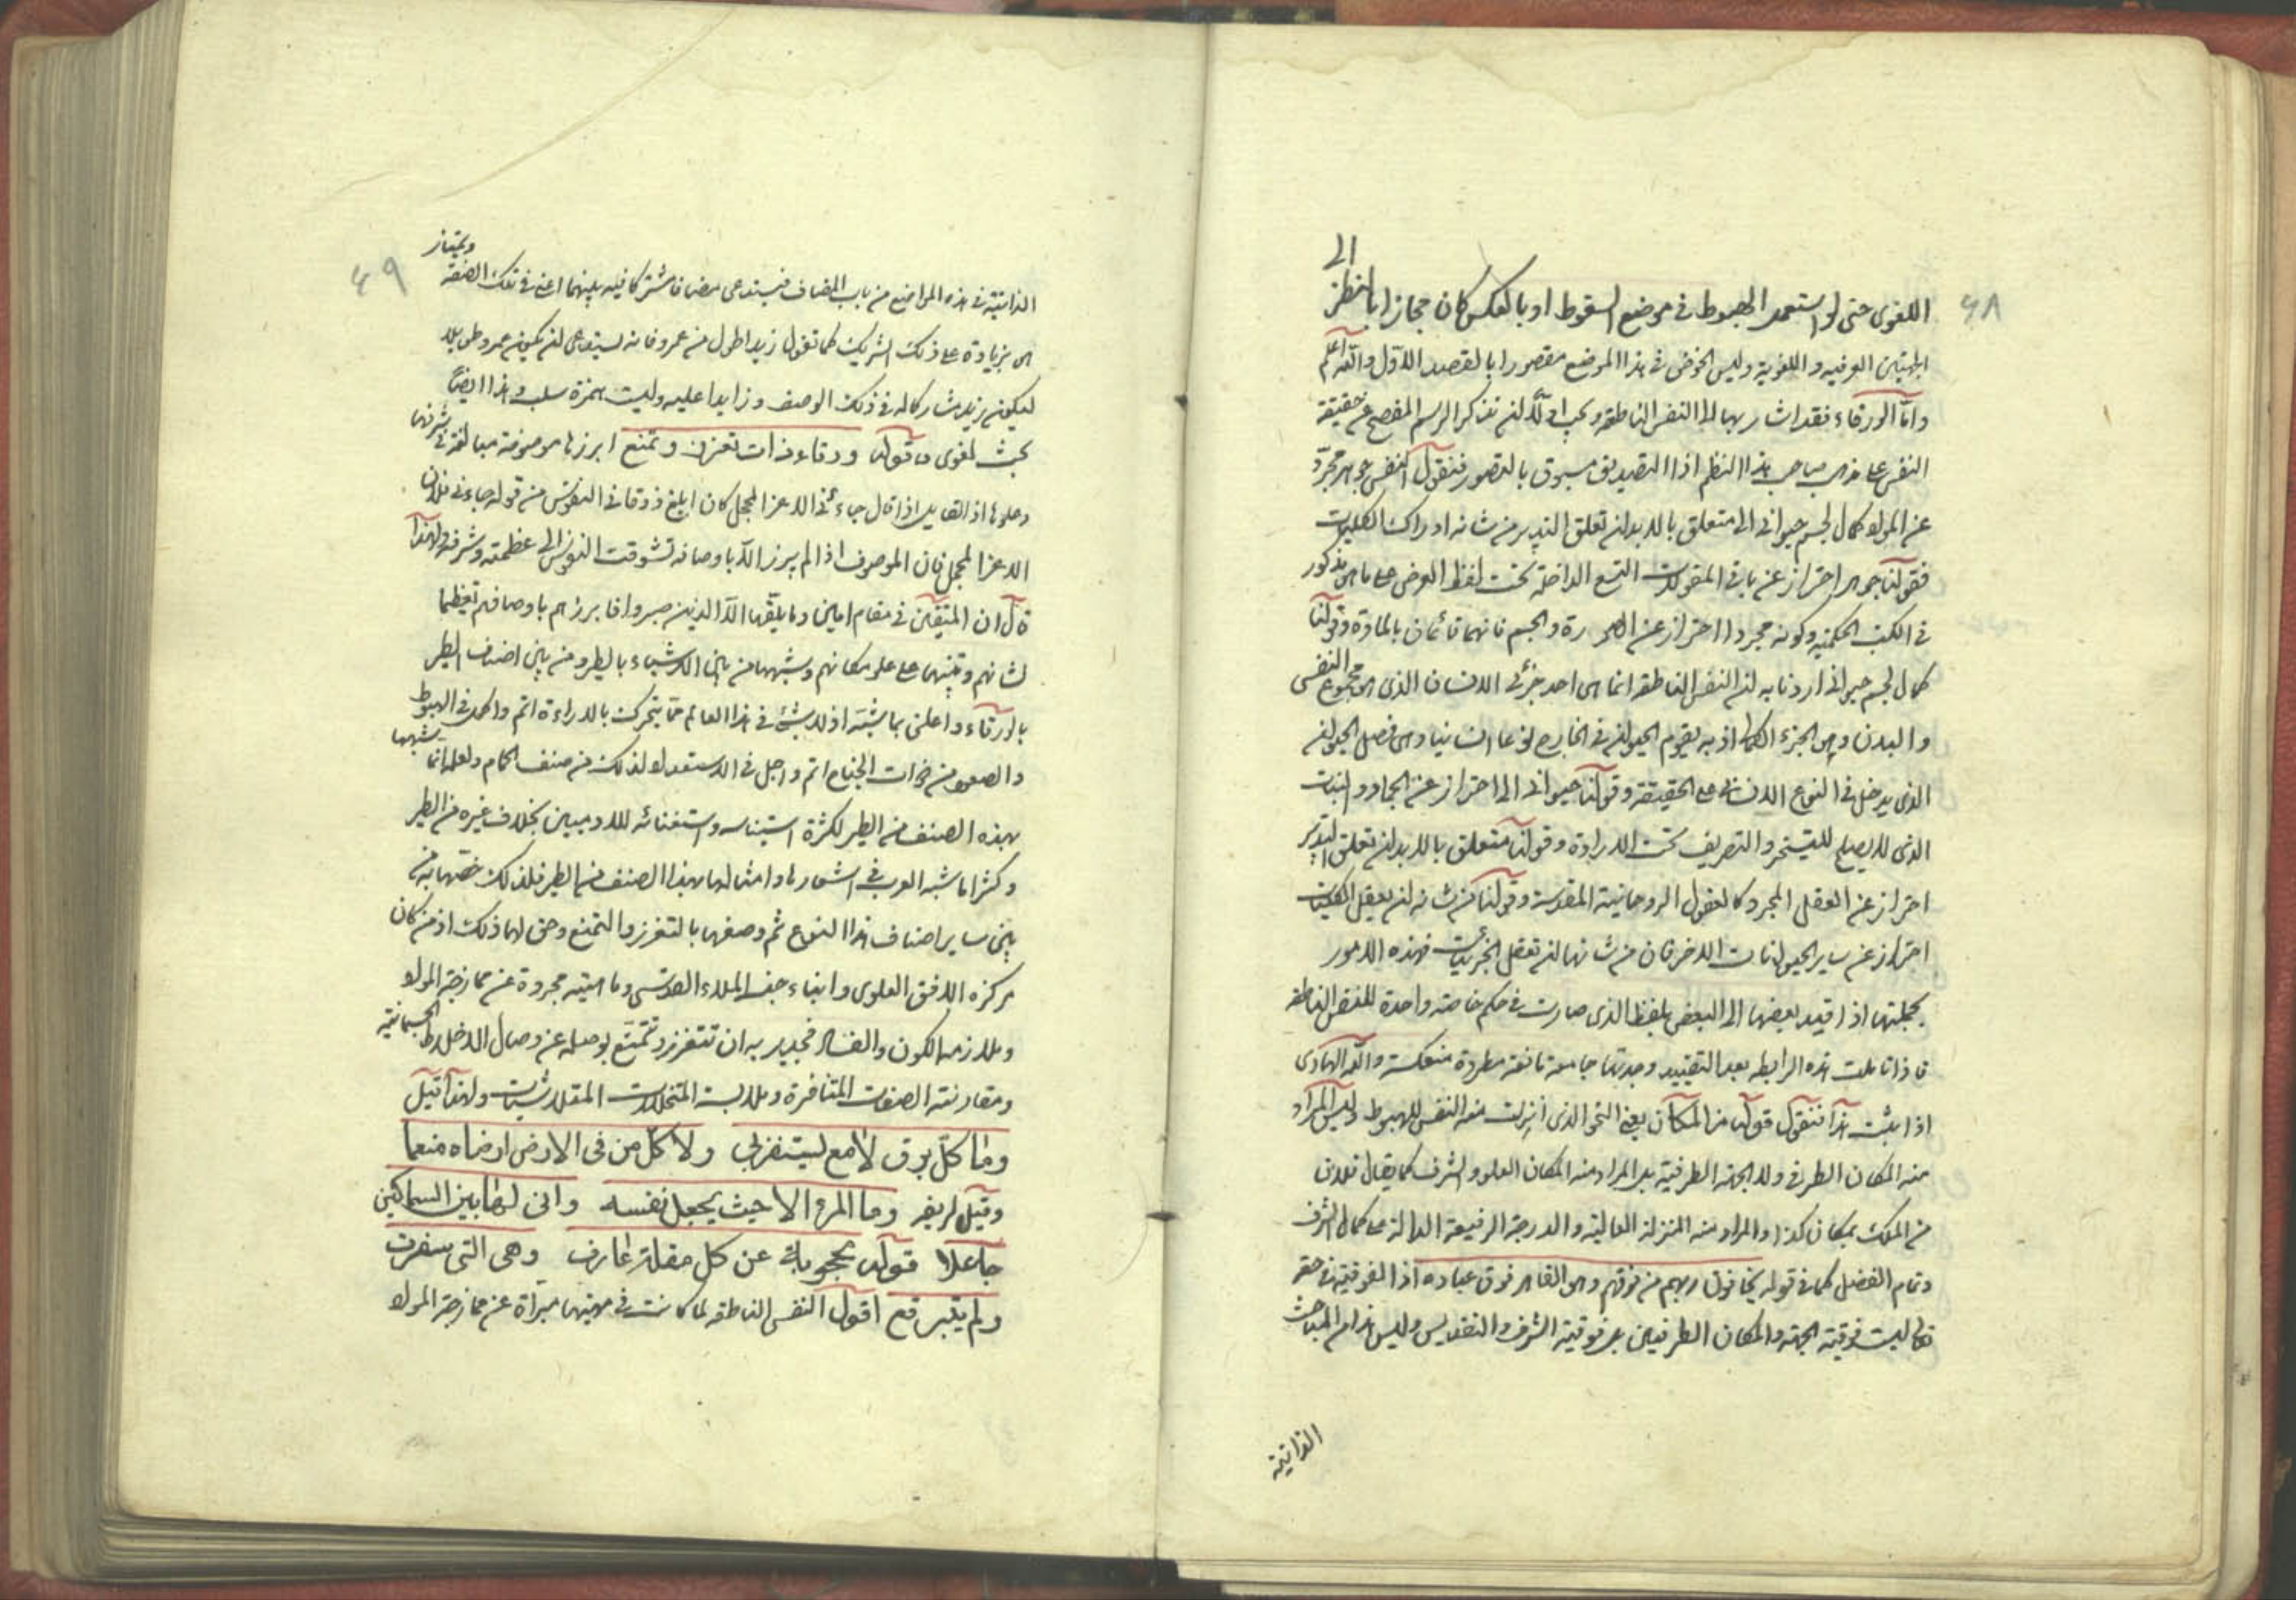 ٤٨
اللغوى حتى لو استعمل الهبوط فى موضع السقوط او بالعكس كان مجازا بالنظر الى
الجهتين العرفيه و اللغوية وليس الخوض فى هذا الموضع مقصورا بالقصد الاول والله اعلم
واما الورقاء فقد اشار بها الى النفس الناطقه ويجب اولا ان نذكر الرسم المفصح عن حقيقة
النفس على مذهب صاحب هذا النظم اذ التصديق مسبوق بالتصور فنقول النفس جوهر مجرد
عن المواد كمال لجسم حيوانى الى متعلق بالابدان تعلق التدبير من شانه ادراك الكليات
فقولنا جوهر احتراز عن باقى المقولات التسع الداخلة تحت لفظ العرض على ما هى مذكور
فى الكتب الحكمية وكونه مجردا احتراز عن الصورة والجسم فانهما قائمان بالمادة وقولنا
كمال لجسم حيوانى اردنا به ان النفس الناطقه انما هى احد جزئى الانسان الذى هو مجموع النفس
والبدن وهى الجزء الكمالى اذ به يقوم الحيوان فى الخارج نوعا انسانيا وهى فصل الحيوان
الذى يدخل فى النوع الانسانى على الحقيقة وقولنا حيوانى الى احتراز عن الجماد والنبات
الذى لا يصلح للتسخير والتصريف تحت الارادة وقولنا متعلق بالابدان تعلق التدبير
احتراز عن العقل المجرد كالعقول الروحانية المقدسة وقولنا من شانه ان يعقل الكليات
احتراز عن ساير الحيوانات الاخر فان من شانها ان تعقل الجزئيات فهذه الامور
بجملتها اذا قيد بعضها الى البعض بلفظ الذى صارت فى حكم خاصة واحدة للنفس الناطقه
فاذا تاملت هذه الرابطه بعد التقييد وجدتها جامعة مانعة مطردة منعكسة والله الهادى
اذا ثبت هذا فنقول قوله من المكان يعنى النحو الذى انزلت منه النفس للهبوط وليس المراد
منه المكان الظرفى ولا الجهة الظرفية بل المراد منه المكان العلو والشرف كما يقال فلان
من الملك بمكان كذا والمراد منه المنزلة العالية والدرجة الرفيعة الدالة على كمال الشرف
وتمام الفضل كما فى قوله يخافون ربهم من فوقهم وهو القاهر فوق عباده اذ الفوقية فى حقه
تعالى ليست فوقية الجهة والمكان الظرفيين بل فوقية الشرف والتقديس وليس هذا من المباحث
الذاتية
٤٩
الذاتية فى هذه المواضع من باب المضاف فيستدعى مضافا مشتركا فيه بينهما اعنى فى تلك الصفة ويمتاز
هى بزيادة على ذلك الشريك كما تقول زيد اطول من عمرو فانه يستدعى ان يكون عمرو طويلا
ليكون زيد مشاركا له فى ذلك الوصف وزايدا عليه وليست همزة سلب وهذا ايضا
بحث لغوى قوله ورقاء ذات تعزز وتمنع ابرزها موصوفة مبالغة فى شرفها
وعلوها اذ القايل اذا قال جاءنى الاعز المبجل كان ابلغ ذوقا فى النفوس من قوله جاءنى فلان
الاعز المبجل فان الموصوف اذا لم يبرز الا باوصافه تشوقت النفوس الى عظمته وشرفه ولهذا
قال ان المتقين فى مقام امين وما يلقيها الا الذين صبروا فابرزهم باوصافهم تعظيما
لشانهم وتنبيها على علو مكانهم وشبهها من بين الاشياء بالطير ومن بين اصناف الطير
بالورقاء واعلى بما شبه اذ لا شىء فى هذا العالم مما يتحرك بالارادة اتم واكمل فى الهبوط
والصعود من ذوات الجناح اتم واجل فى الاستعداد لذلك من صنف الحمام ولعله انما شبهها
بهذه الصنف من الطير لكثرة استيناسه واستغنائه للادميين بخلاف غيره من الطير
وكثيرا ما شبه العرب فى اشعارها وامثالها بهذا الصنف من الطير فلذلك خصها به من
بين ساير اصناف هذا النوع ثم وصفها بالتعزز والتمنع وحق لها ذلك اذ من كان
مركزه الافق العلوى وابناء جنسه الملاء القدسى وماهيته مجردة عن ممازجة المواد
وملازمة الكون والفساد فجدير به ان تتعزز وتمتنع بوصله عن وصال الاخلاط الجسمانية
ومقارنته الصفات المتنافرة وملابسة المتخللات المتلاشيات ولهذا قيل
وما كل برق لامع يستفزنى ولا كل من فى الارض ارضاه منعما
وقيل لربض وما المرء الا حيث يجعل نفسه وانى لها بين السماكين
جاعلا قوله محجوبة عن كل مقلة عارف وهى التى سفرت
ولم تتبرقع اقول النفس الناطقه لما كانت فى مهيتها مبراة عن ممازجة المواد